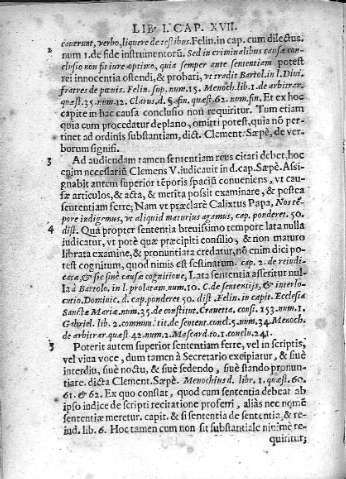 LIB. I. CAP. XVII.
cauerunt, verbo, liquere de testibus. Felin. in cap. cum dilectus.
num. 1. de fide instrumentorũ. Sed in criminalibus causæ con-
clusio non fit iure aptiùs, quia semper ante sententiam potest
rei innocentia ostendi, & probari, vt tradit Bartol. in l. Diui
fratres de pœnis. Felin. sup. num. 15. Menoch. lib. 1. de arbitrar.
quæst. 35. num. 12. Clarus, d. §. fin. quæst. 62. num. fin. Et ex hoc
capite in hac causa conclusio non requiritur. Tum etiam
quia cum procedatur deplano, omitti potest, quia nõ per-
tinet ad ordinis substantiam, dict. Clement. Sæpè, de ver-
borum signifi.
3 Ad audiendam tamen sententiam reus citari debet, hoc
enim necessariũ Clemens V. iudicauit in d. cap. Sæpè. Assi-
gnabit autem superior tẽporis spaciũ conueniens, vt cau-
sæ articulos, & acta, & merita possit examinare, & postea
sententiam ferre; Nam vt præclarè Calixtus Papa, Nos tẽ-
pore indigemus, vt aliquid maturius agamus, cap. ponderet. 50.
4 dist. Qua propter sententia breuissimo tempore lata nulla
iudicatur, vt potè quæ præcipiti consilio, & non maturo
librata examine, & pronuntiata credatur, nõ enim dici po-
test cognitum, quod nimis est festinatum. cap. 2. de reiudi-
cata, & sic sine causæ cognitione, Lata sententia asseritur nul-
la à Bartolo, in l. prolatam, num. 10. C. de sententijs, & interlo-
cutio. Dominic. d. cap. ponderet 50. dist. Felin. in capit. Ecclesia
Sanctæ Mariæ, num. 35. de constitut. Crauetta, consi. 153. num. 1.
Gabriel. lib. 2. commun. tit. de senten. concl. 5. num. 34. Menoch.
de arbitrar. quæst. 42. num. 2. Mascard. to. 1. conclu. 241.
5 Poterit autem superior sententiam ferre, vel in scriptis,
vel viua voce, dum tamen à Secretario excipiatur, & siuè
interdiu, siuè noctu, & siuè sedendo, siuè stando pronun-
tiare. dicta Clement. Sæpè. Menochius d. libr. 1. quæst. 60.
61. & 62. Ex quo constat, quod cum sententia debeat ab
ipso iudice de scripti recitatione proferri, aliàs nec nomẽ
sententiæ meretur. capit. & si sententia de sententia & re-
iud. lib. 6. Hoc tamen cum non sit substantiale minimè re-
quiritur;